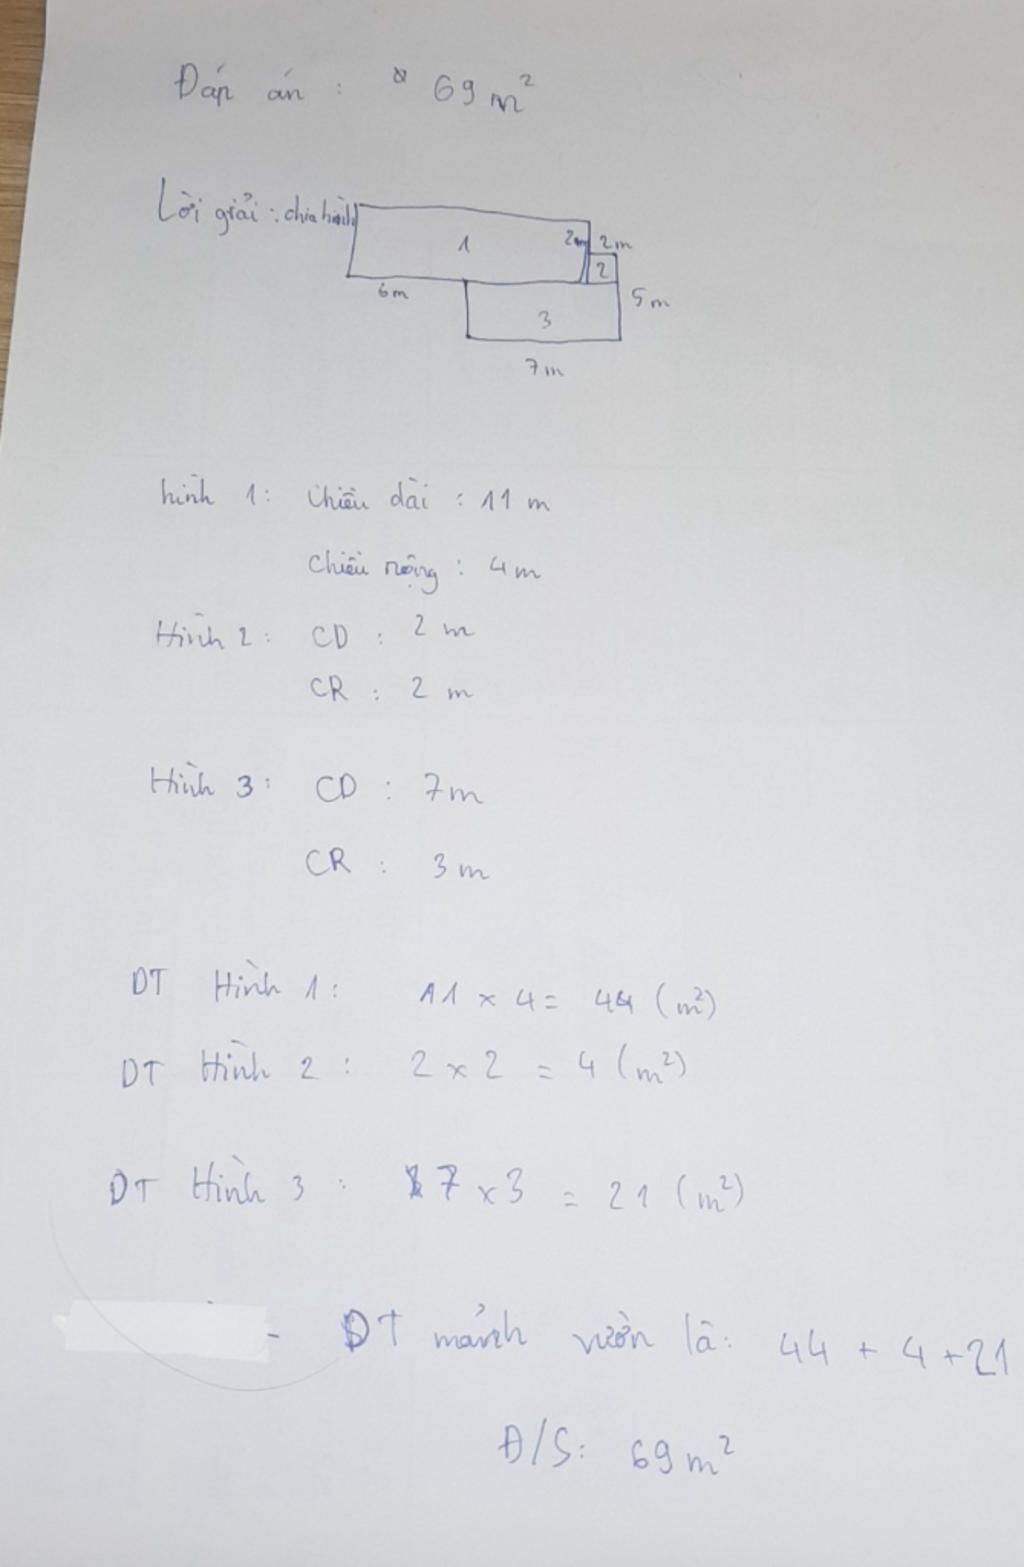 Đáp án : 69 m²
Lời giải : chia hình
1
2m
2m
2
6m
5m
3
7m
hình 1: Chiều dài : 11 m
Chiều rộng : 4m
Hình 2: CD : 2 m
CR : 2 m
Hình 3: CD : 7m
CR : 3m
DT Hình 1: 11 x 4 = 44 (m²)
DT Hình 2 : 2 x 2 = 4 (m²)
DT Hình 3 : 7 x 3 = 21 (m²)
- DT mảnh vườn là: 44 + 4 + 21
Đ/S: 69 m²